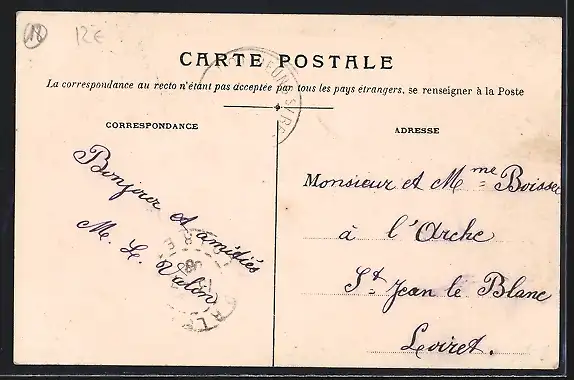 12 12€
CARTE POSTALE
La correspondance au recto n'étant pas acceptée par tous les pays étrangers, se renseigner à la Poste
CORRESPONDANCE
ADRESSE
Bonjour et amitiés
M. L.
Monsieur et Mme Boisse
à l'Arche
St Jean le Blanc
Loiret.